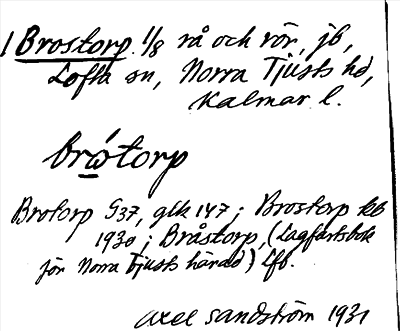 1 Brostorp 1/8 rå och rör, jb,
Lofta sn, Norra Tjusts hd,
Kalmar l.
brótorp
Brotorp G37, glk 147; Brostorp kb
1930; Bråstorp, (Lagfartsbok
för Norra Tjusts härad) Lfb.
Axel Sandström 1931